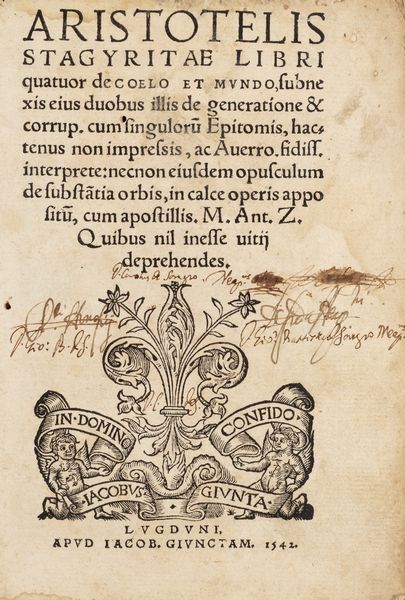 ARISTOTELIS
STAGYRITAE LIBRI
quatuor de COELO ET MVNDO, subne
xis eius duobus illis de generatione &
corrup. cum singulorũ Epitomis, hac-
tenus non impressis, ac Auerro. fidiss.
interprete: necnon eiusdem opusculum
de substãtia orbis, in calce operis appo
sitũ, cum apostillis. M. Ant. Z.
Quibus nil inesse uitij
deprehendes.
IN·DOMINO
CONFIDO·
IACOBVS
GIVNTA·
LVGDVNI,
APVD IACOB. GIVNCTAM. 1542.